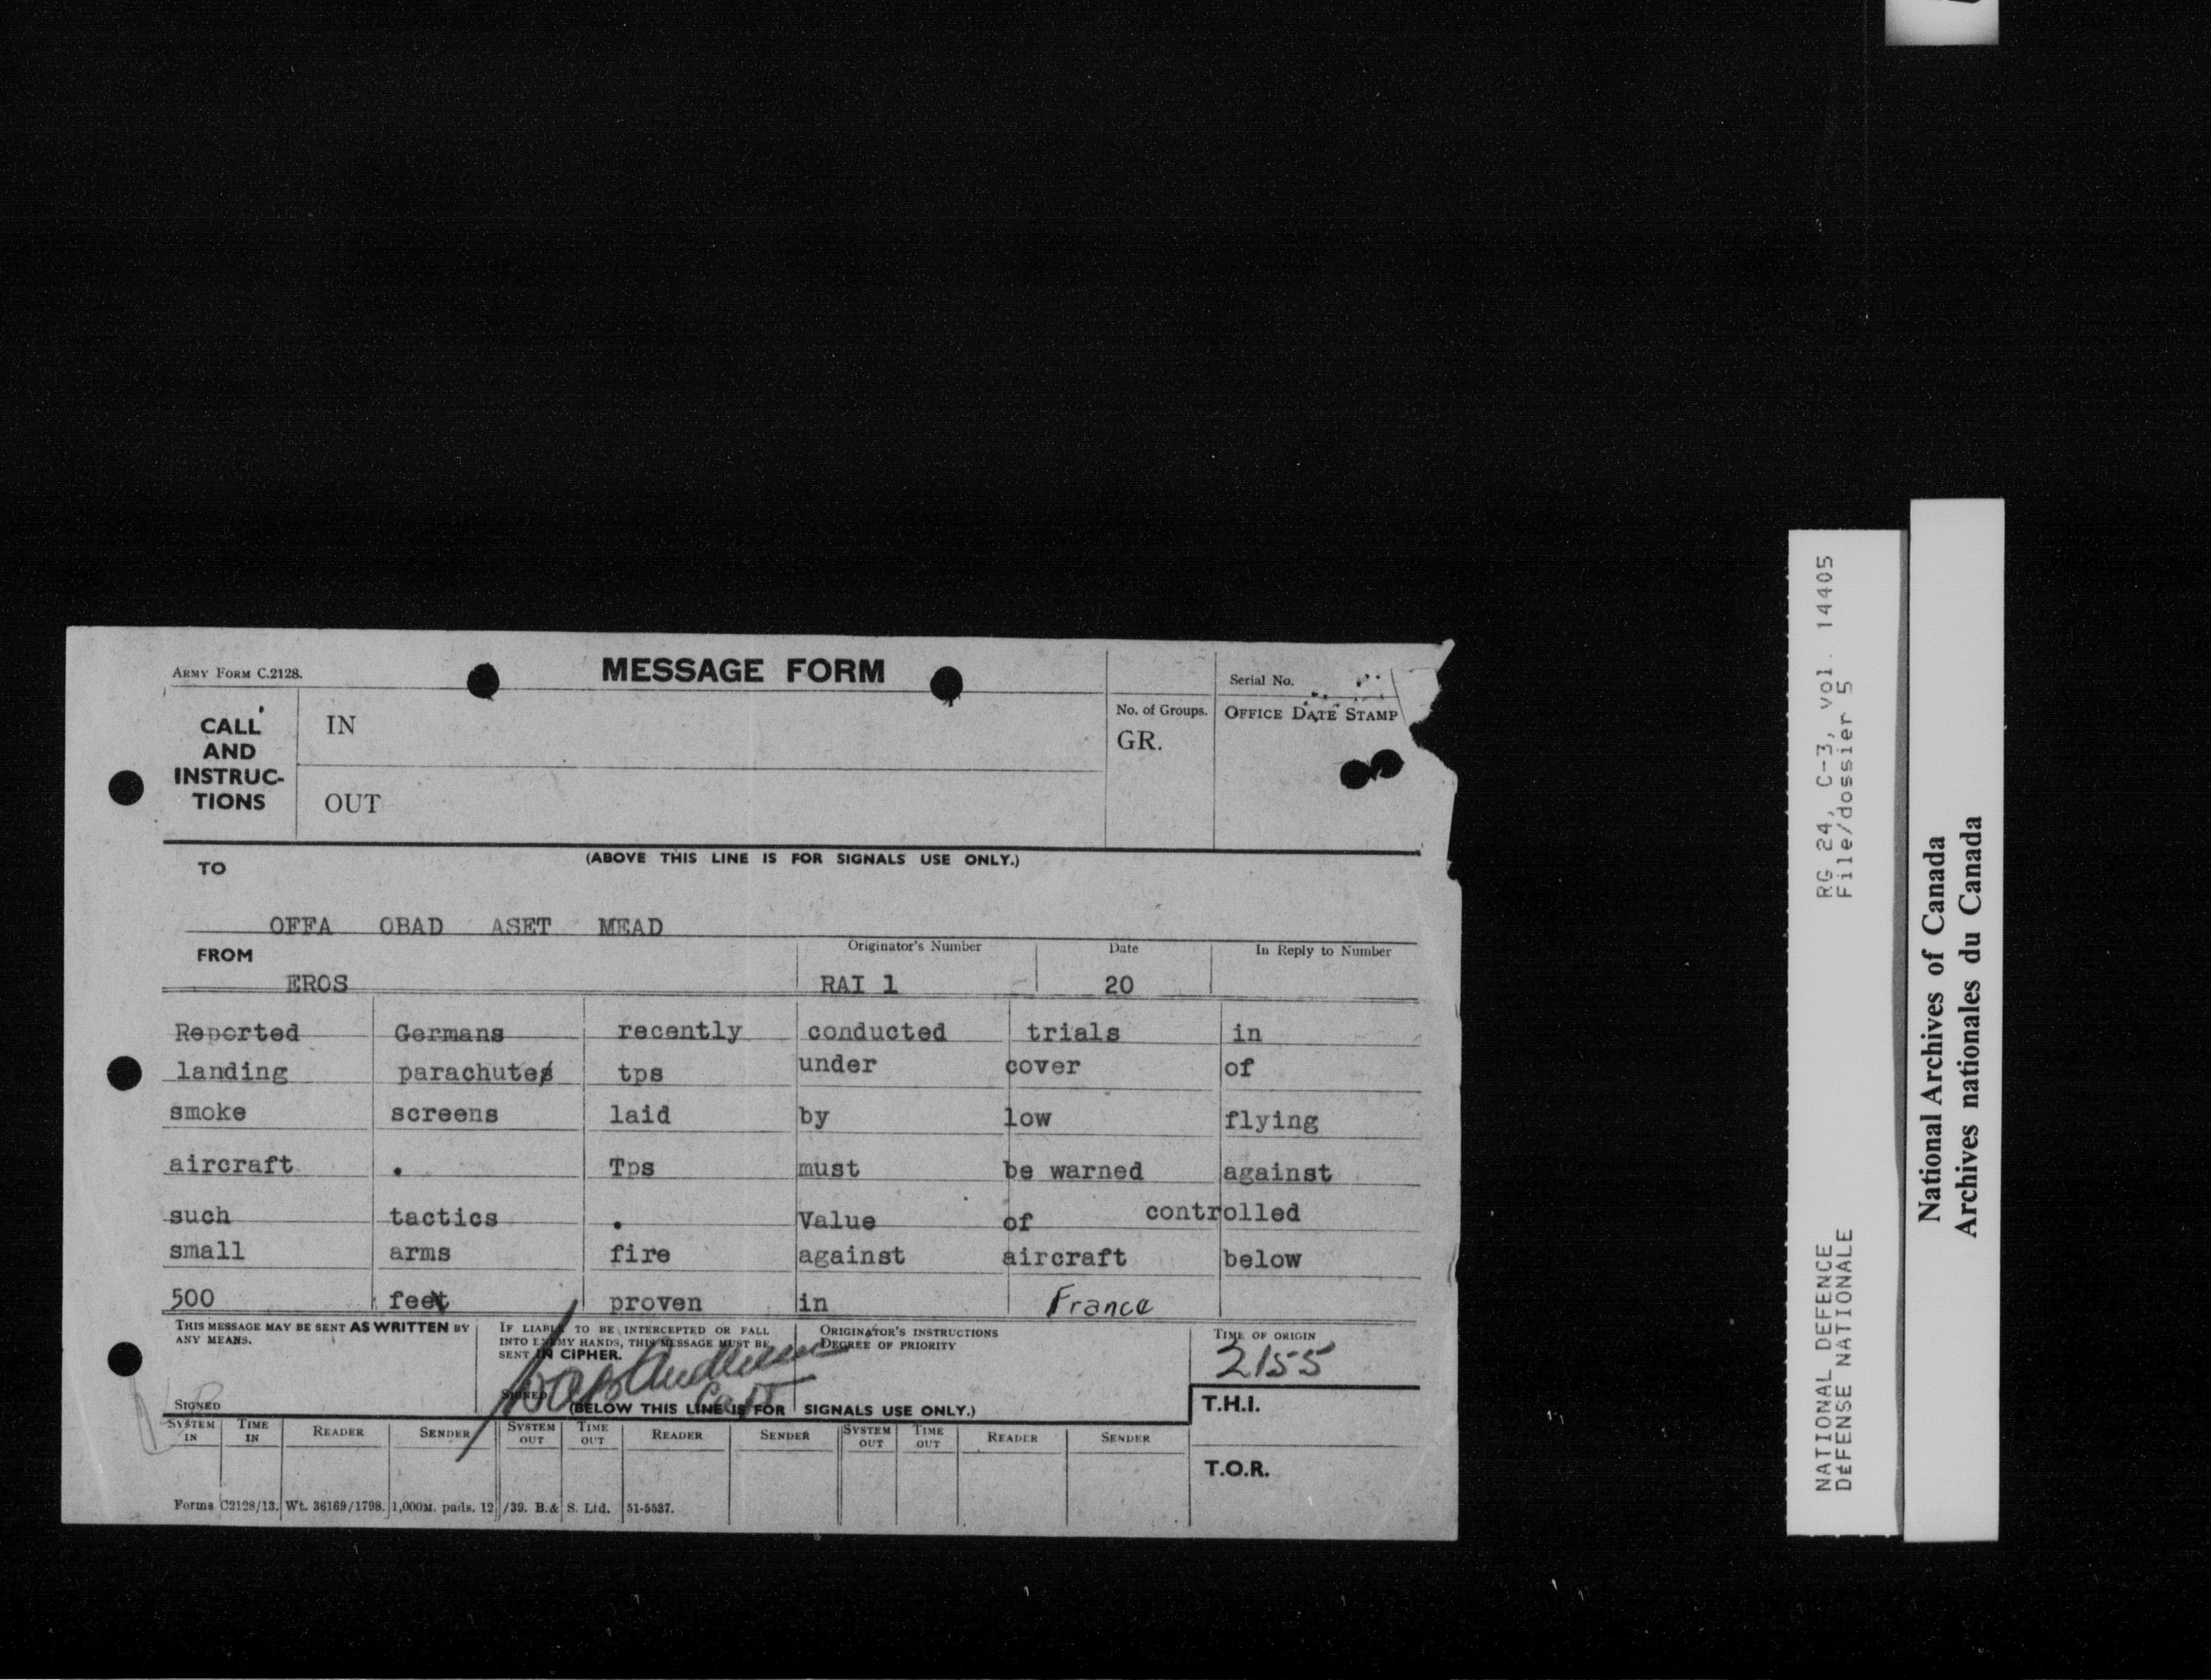 ARMY FORM C.2128.
MESSAGE FORM
Serial No.
CALL AND INSTRUC-TIONS
IN
OUT
No. of Groups.
GR.
OFFICE DATE STAMP
(ABOVE THIS LINE IS FOR SIGNALS USE ONLY.)
TO
OFFA OBAD ASET MEAD
FROM
Originator's Number
Date
In Reply to Number
EROS RAI 1 20
Reported Germans recently conducted trials in
landing parachutes tps under cover of
smoke screens laid by low flying
aircraft . Tps must be warned against
such tactics . Value of controlled
small arms fire against aircraft below
500 feet proven in France
THIS MESSAGE MAY BE SENT AS WRITTEN BY
ANY MEANS.
SIGNED
IF LIABLE TO BE INTERCEPTED OR FALL
INTO ENEMY HANDS, THIS MESSAGE MUST BE
SENT IN CIPHER.
SIGNED
Capt
ORIGINATOR'S INSTRUCTIONS
DEGREE OF PRIORITY
TIME OF ORIGIN
2155
(BELOW THIS LINE IS FOR SIGNALS USE ONLY.)
T.H.I.
SYSTEM IN TIME IN READER SENDER SYSTEM OUT TIME OUT READER SENDER SYSTEM OUT TIME OUT READER SENDER
T.O.R.
Forms C2128/13. Wt. 36169/1798. 1,000M. pads. 12/39. B.& S. Ltd. 51-5537.
NATIONAL DEFENCE RG 24, C-3, vol. 14405
DÉFENSE NATIONALE File/dossier 5
National Archives of Canada
Archives nationales du Canada